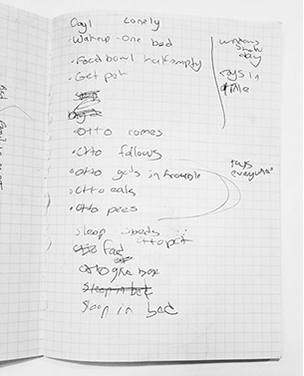 Day 1 Lonely
• Wakeup - One bed
• Food bowl half empty
• Get pet
• Otto comes
• Otto follows
• Otto gets in trouble
• Otto eats
• Otto pees
Sleep 2 beds
Otto pet
Otto fed
Otto give box
Sleep in bed
Sleep in bed
windows
show
day
toys in
toys
everywhere